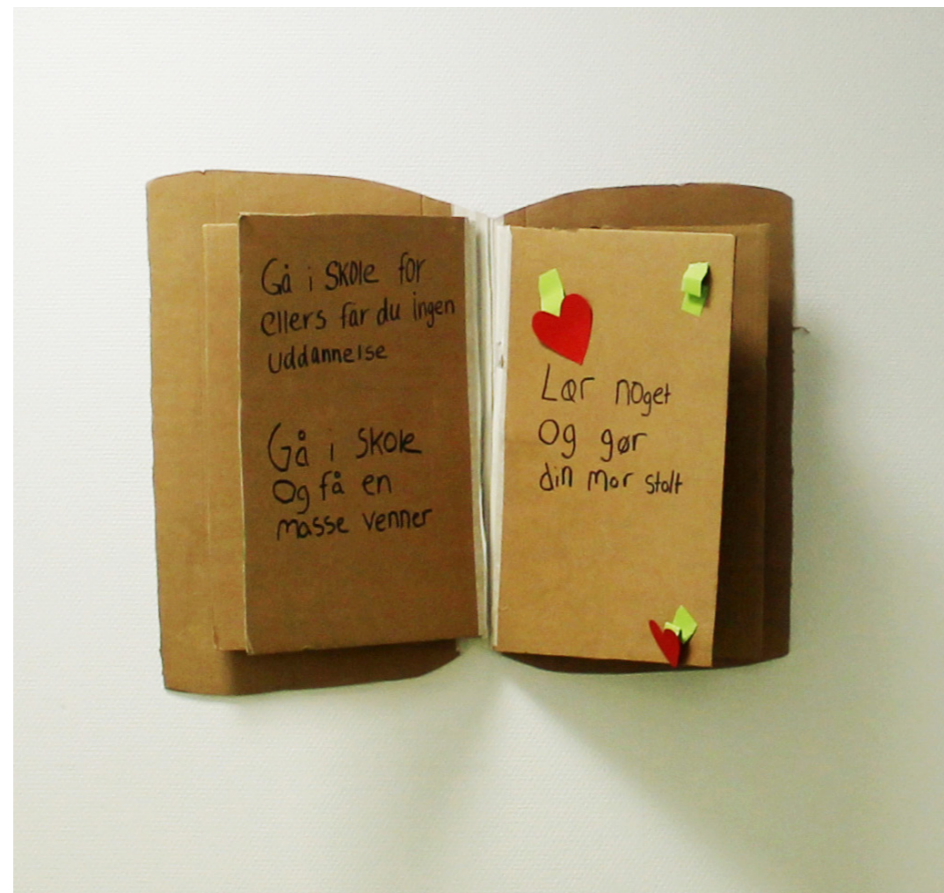 Gå i skole for
ellers får du ingen
uddannelse
Gå i skole
Og få en
masse venner
Lær noget
Og gør
din mor stolt